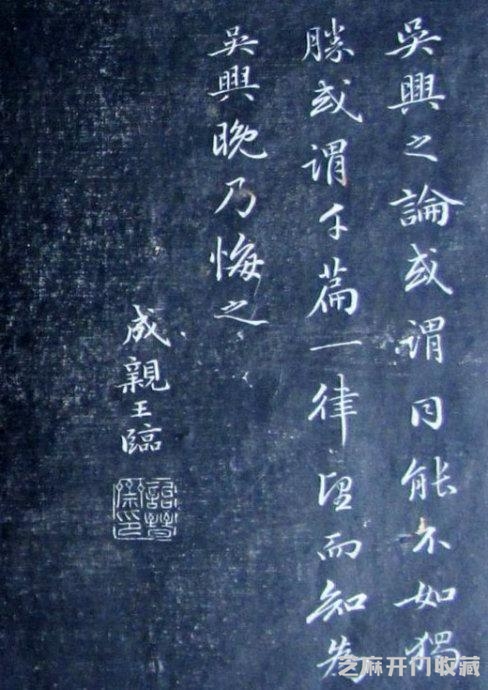 吳興之論或謂同能不如獨
勝或謂千篇一律而知為
吳興晚乃悔之
成親王臨
詒晉齋印
芝麻开门收藏